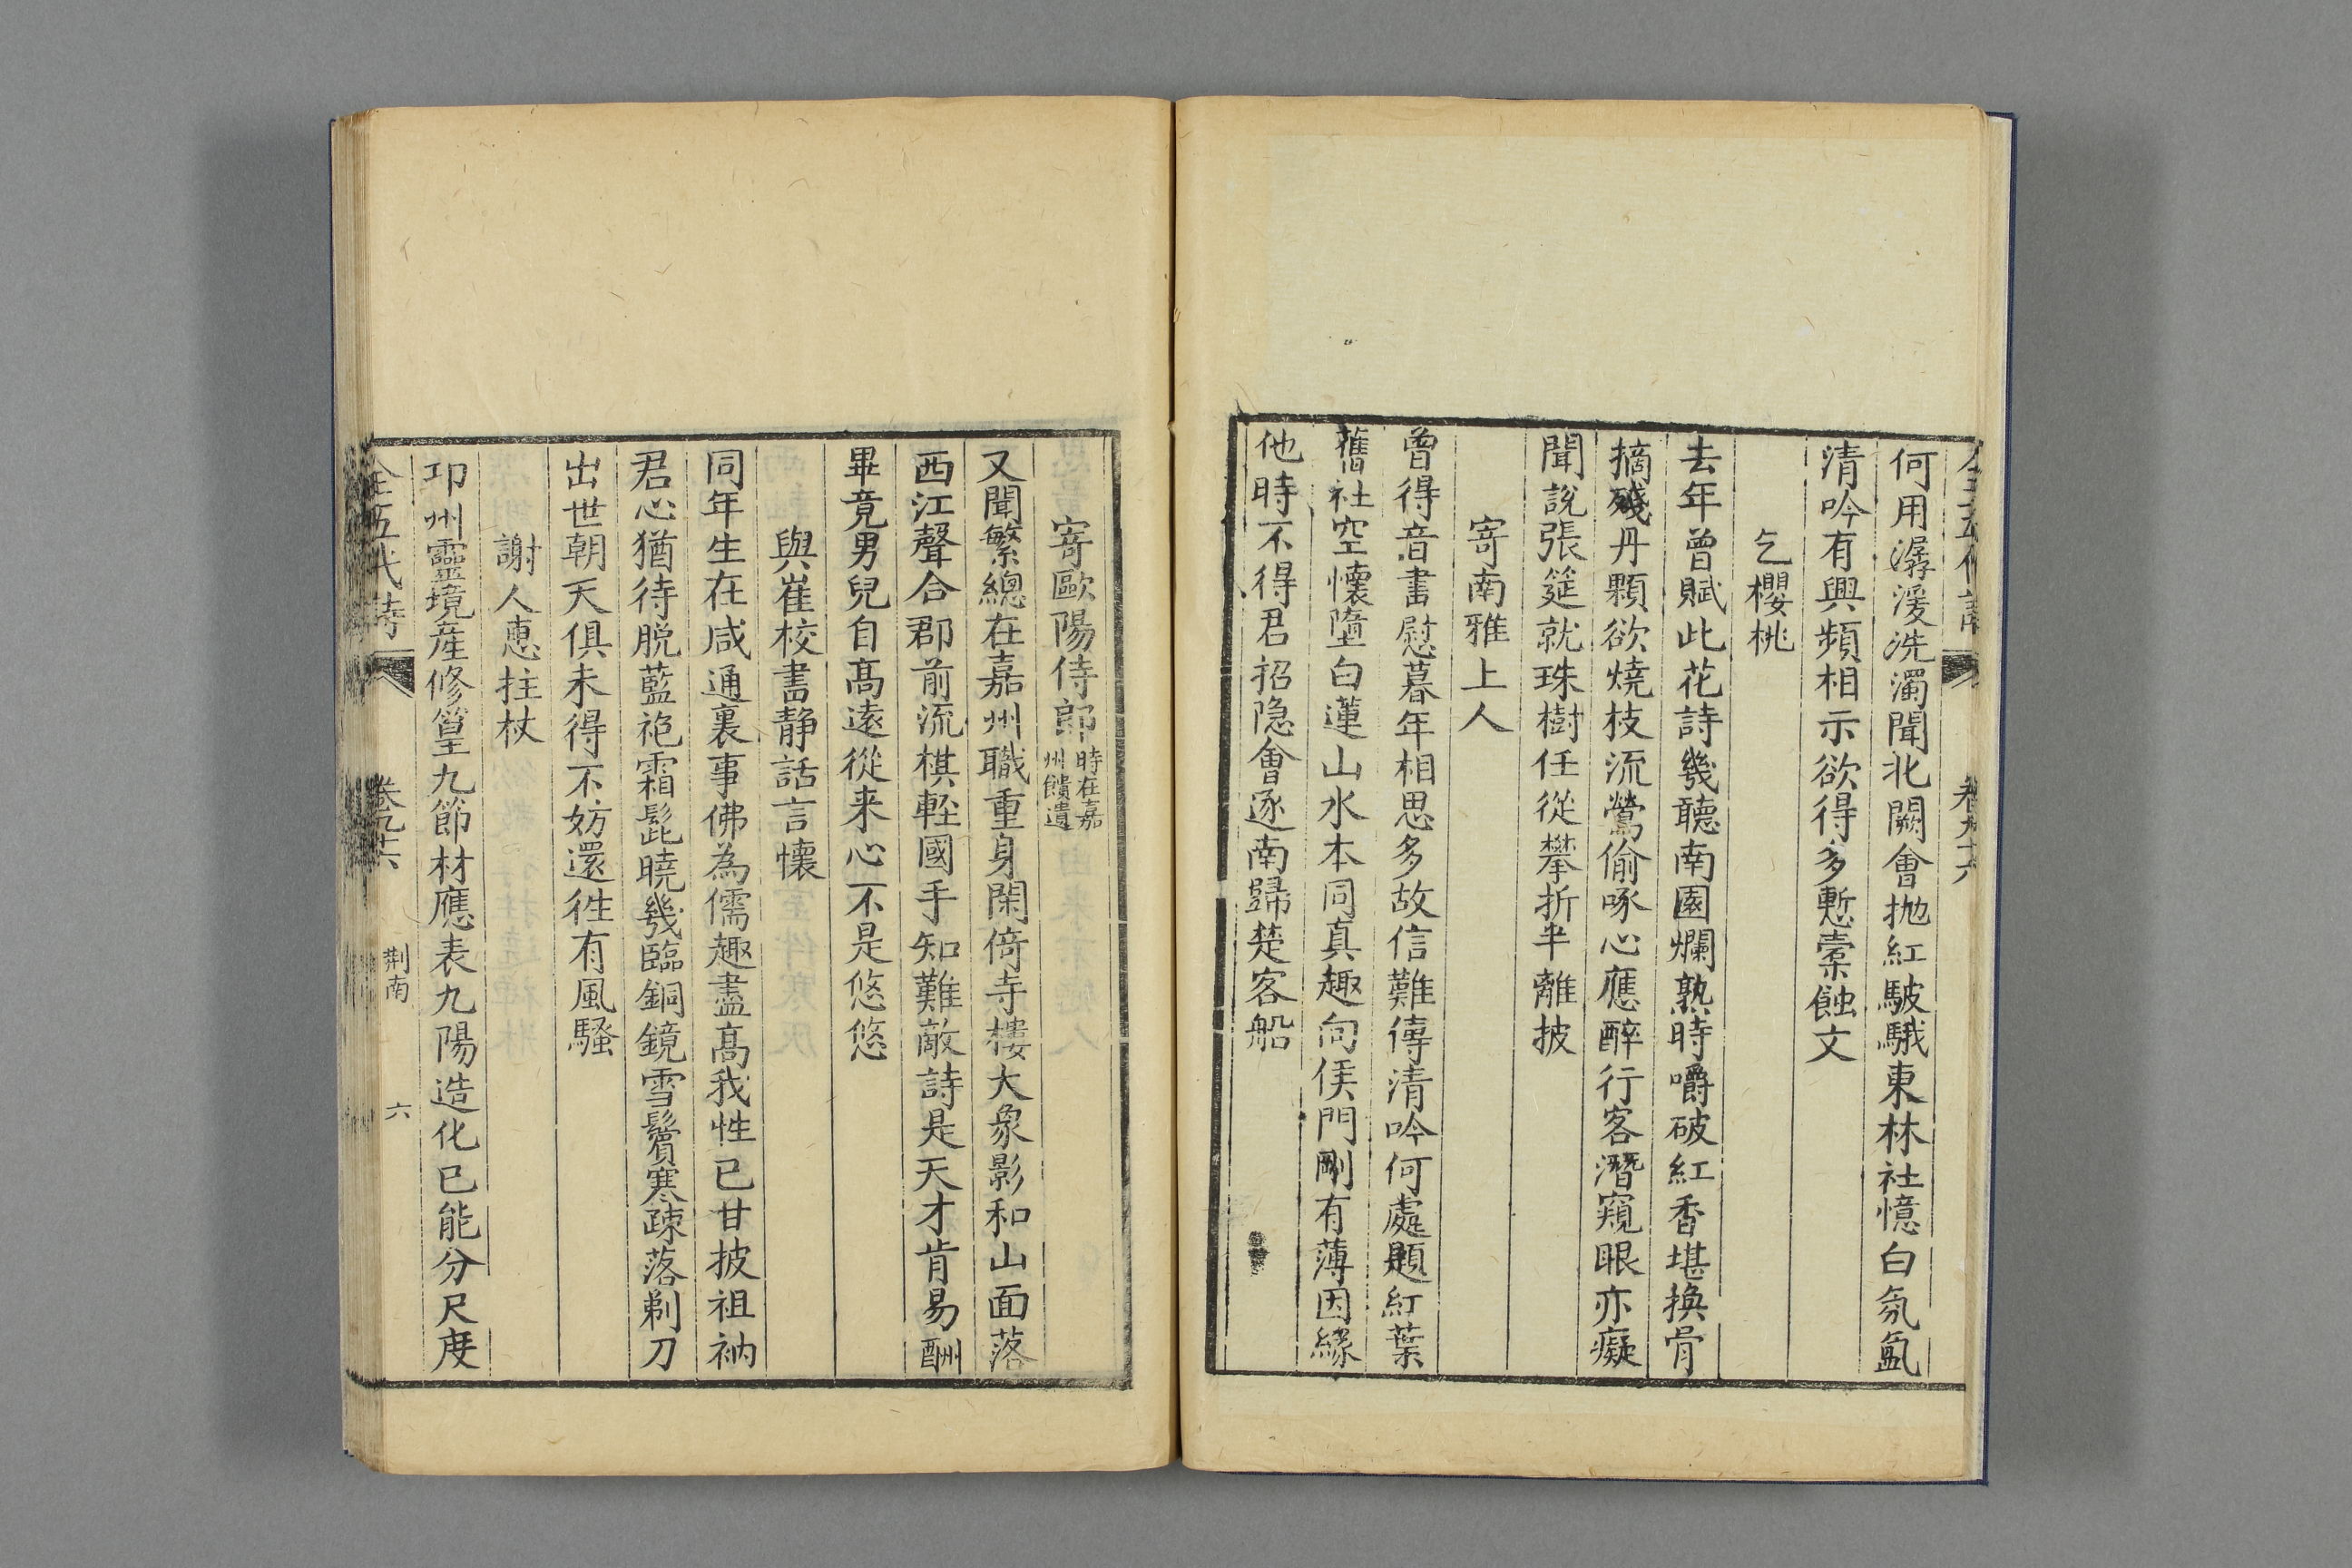 何用潺湲洗濁聞北闕會拋紅駊騀東林社憶白氛氳
清吟有興頻相示欲得多慙蠹蝕文
乞櫻桃
去年曾賦此花詩幾聽南園爛熟時嚼破紅香堪換骨
摘殘丹顆欲燒枝流鶯偷啄心應醉行客潛窺眼亦癡
聞說張筵就珠樹任從攀折半離披
寄南雅上人
曾得音書慰暮年相思多故信難傳清吟何處題紅葉
舊社空懷墮白蓮山水本同真趣向侯門剛有薄因緣
他時不得君招隱會逐南歸楚客船
寄歐陽侍郎時在嘉州饋遺
又聞繁總在嘉州職重身閑倚寺樓大象影和山面落
西江聲合郡前流棋輕國手知難敵詩是天才肯易酬
畢竟男兒自高遠從来心不是悠悠
與崔校書静話言懷
同年生在咸通裏事佛為儒趣盡高我性已甘披祖衲
君心猶待脱藍袍霜髭曉幾臨銅鏡雪鬢寒疎落剃刀
出世朝天俱未得不妨還徃有風騷
謝人惠拄杖
邛州靈境產修篁九節材應表九陽造化已能分尺度
全五代詩 卷九十六 荆南 六